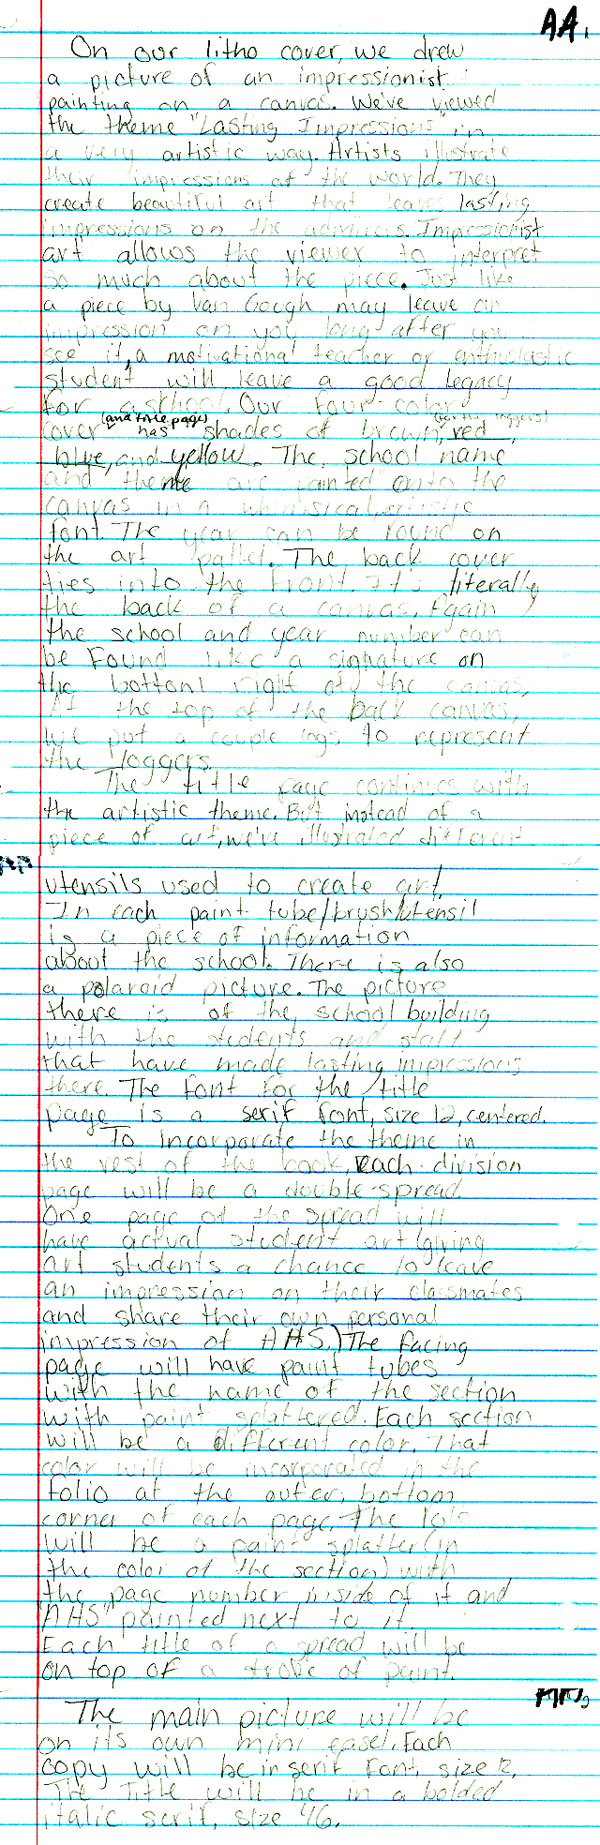 AA.
On our litho cover, we drew
a picture of an impressionist
painting on a canvas. We've viewed
the theme "Lasting Impressions" in
a very artistic way. Artists illustrate
their impressions of the world. They
create beautiful art that leaves lasting
impressions on the admirers. Impressionist
art allows the viewer to interpret
so much about the piece. Just like
a piece by Van Gough may leave an
impression on you long after you
see it, a motivational teacher or enthusiastic
student will leave a good legacy
for a school. Our four-color
cover (and title page) has shades of brown (for the loggers), red,
blue, and yellow. The school name
and theme are painted onto the
canvas in a whimsical, artistic
font. The year can be found on
the art pallet. The back cover
ties into the front. It's literally
the back of a canvas. Again,
the school and year number can
be found like a signature on
the bottom right of the canvas.
At the top of the back canvas,
we put a couple logs to represent
the loggers.
The title page continues with
the artistic theme. But instead of a
piece of art, we've illustrated different
utensils used to create art.
In each paint tube/brush/utensil
is a piece of information
about the school. There is also
a polaroid picture. The picture
there is of the school building
with the students and staff
that have made lasting impressions
there. The font for the title
page is a serif font, size 12, centered.
To incorporate the theme in
the rest of the book, each division
page will be a double-spread.
One page of the spread will
have actual student art (giving
art students a chance to leave
an impression on their classmates
and share their own personal
impression of AHS.) The facing
page will have paint tubes
with the name of the section
with paint splattered. Each section
will be a different color. That
color will be incorporated in the
folio at the outer, bottom
corner of each page. The folio
will be a paint splatter (in
the color of the section) with
the page number inside of it and
"AHS" painted next to it.
Each title of a spread will be
on top of a stroke of paint.
The main picture will be
on its own mini easel. Each
copy will be in serif font, size 12.
The Title will be in a bolded
italic serif, size 46.